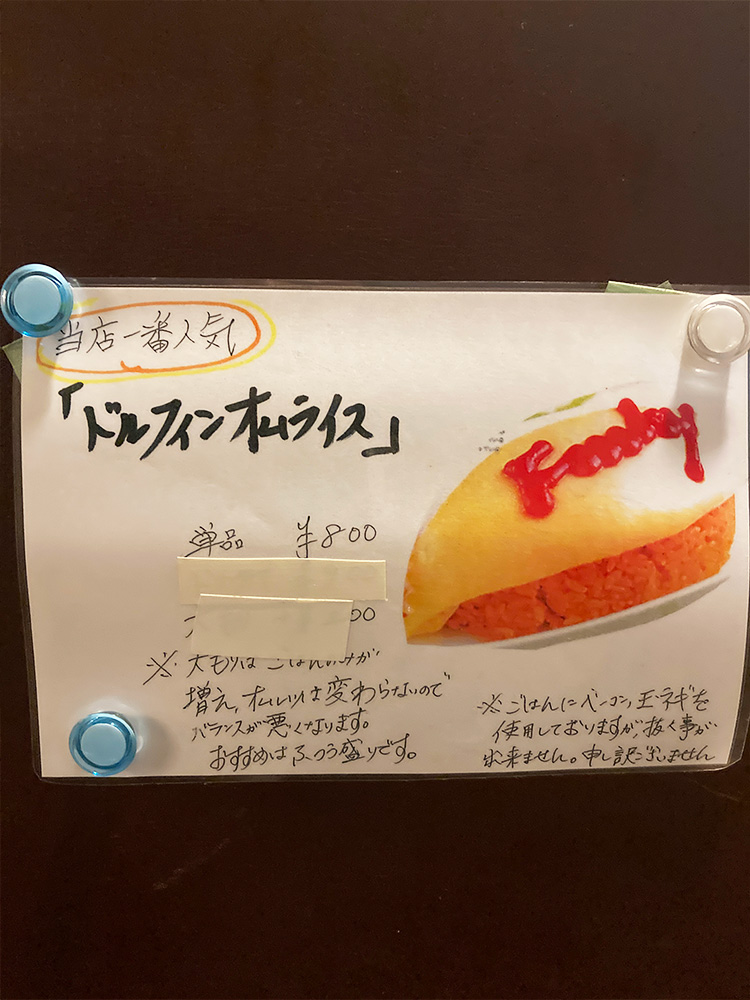 当店一番人気
「ドルフィンオムライス」
単品 ¥800
00
※ 大もりは ごはんのみが
増え、オムレツは変わらないので
バランスが悪くなります。
おすすめは ふつう盛りです。
※ごはんにベーコン、玉ネギを
使用しておりますが、抜く事が
出来ません。申し訳ございません